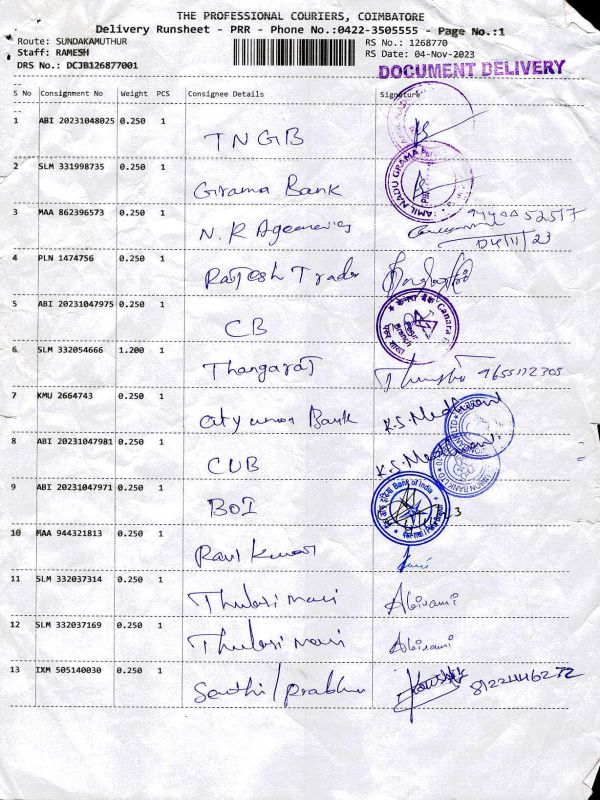 THE PROFESSIONAL COURIERS, COIMBATORE
Delivery Runsheet - PRR - Phone No.:0422-3505555 - Page No.:1
Route: SUNDAKAMUTHUR
RS No.: 1268770
Staff: RAMESH
RS Date: 04-Nov-2023
DRS No.: DCJB126877001
DOCUMENT DELIVERY
S No Consignment No Weight PCS Consignee Details Signature
1 ABI 20231048025 0.250 1 TNGB
2 SLM 331998735 0.250 1 Grama Bank
TAMIL NADU GRAMA
3 MAA 862396573 0.250 1 N.R Agencies
04/11/23
4 PLN 1474756 0.250 1 Rajesh Trader
5 ABI 20231047975 0.250 1 CB
Canara
Branch
6 SLM 332054666 1.200 1 Thangaraj 9655112305
7 KMU 2664743 0.250 1 City union Bank K.S.
8 ABI 20231047981 0.250 1 CUB K.S.
UNION BANK LTD
9 ABI 20231047971 0.250 1 BOI
Bank of India
10 MAA 944321813 0.250 1 Ravi Kumar
11 SLM 332037314 0.250 1 Thulasi mani Abirami
12 SLM 332037169 0.250 1 Thulasi mani Abirami
13 IXM 505140030 0.250 1 Senthil prabhu Koushik 8122446272